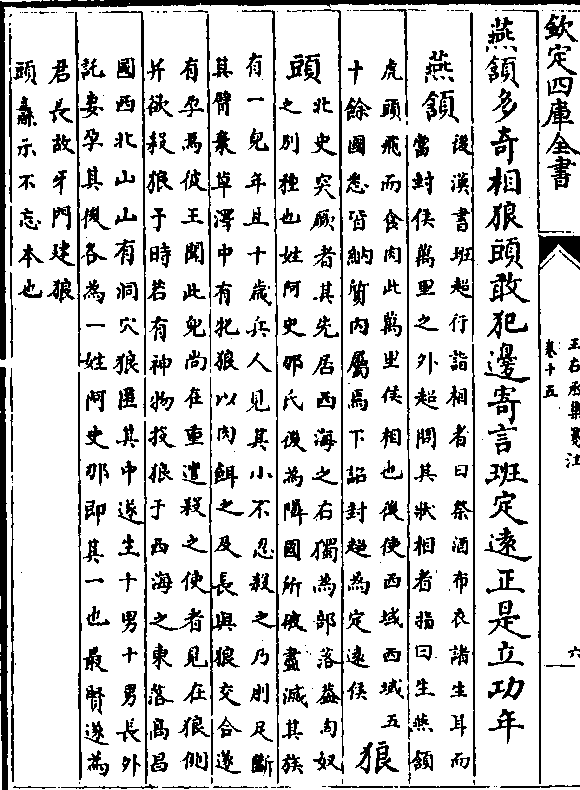 欽定四庫全書
王右丞集箋注
卷十五
六
燕頷多奇相狼頭敢犯邊寄言班定遠正是立功年
燕頷
後漢書班超行詣相者曰祭酒布衣諸生耳而
當封侯萬里之外超問其狀相者指曰生燕頷
虎頭飛而食肉此萬里侯相也後使西域西域五
十餘國悉皆納質内屬焉下詔封超為定遠侯
狼
頭
北史突厥者其先居西海之右獨為部落蓋匈奴
之别種也姓阿史那氏後為隣國所破盡滅其族
有一兒年且十歳兵人見其小不忍殺之乃刖足斷
其臂棄草澤中有牝狼以肉餌之及長與狼交合遂
有孕焉彼王聞此兒尚在重遣殺之使者見在狼側
并欲殺狼于時若有神物投狼于西海之東落髙昌
國西北山山有洞穴狼匿其中遂生十男十男長外
託妻孕其後各為一姓阿史那即其一也最賢遂為
君長故牙門建狼
頭纛示不忘本也